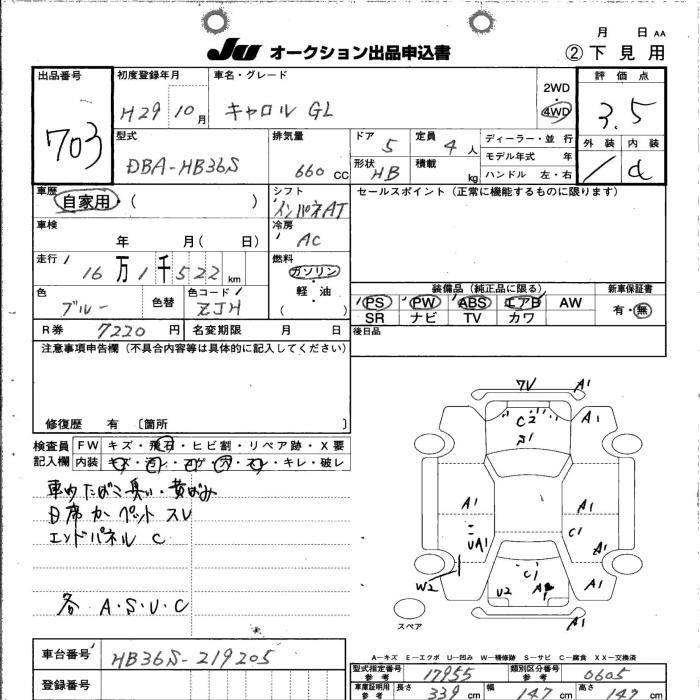 月 日 AA
JU オークション出品申込書 ② 下見用
出品番号 703
初度登録年月 H29 10月
車名・グレード キャロル GL
2WD 4WD
評価点 3.5
外装 内装 d
型式 DBA-HB36S
排気量 660 CC
ドア 5
定員 4 人
形状 HB
積載 kg
ディーラー・並 行
モデル年式 年
ハンドル 左・右
車歴 自家用・( )
シフト インパネAT
セールスポイント (正常に機能するものに限ります)
車検 年 月( 日)
冷房 AC
走行 16万1千522 km
燃料 ガソリン・軽・油 ( )
色 ブルー 色替
色コード ZJH
装備品 (純正品に限る)
PS PW ABS エアB AW
SR ナビ TV カワ
新車保証書 有・無
R券 7220 円
名変期限 月 日
後日品
注意事項申告欄 (不具合内容等は具体的に記入してください)
修復歴 有 〔箇所 〕
検査員記入欄
FW キズ・飛石・ヒビ割・リペア跡・X要
内装 キズ・汚レ・コゲ・穴・スレ・キレ・破レ
車内たばこ臭い・黄ばみ
D席カーペットスレ
エンドパネル C
各 A・S・U・C
7V A1
C2 A1
S1
A1 A1
UA1 C1 A1
W2 C1 A1
U2
A1
スペア
A-キズ E-エクボ U-凹み W-補修跡 S-サビ C-腐食 XX-交換済
車台番号 HB36S-219205
登録番号
型式指定番号 参考 17955
類別区分番号 参考 0605
車庫証明用 参考 長さ 339 cm 幅 147 cm 高さ 149 cm